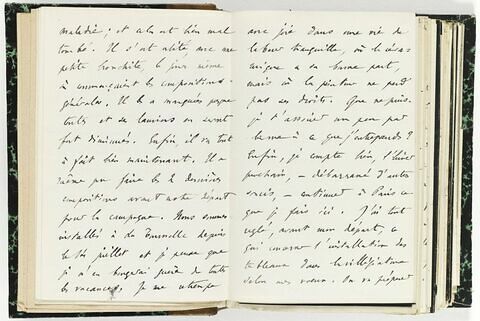 maladie ; et cela est bien mal
tombé. Il s'est alité avec une
petite bronchite, le jour même
où commençaient les compositions
générales. Il les a manquées presque
toutes et ses lauriers en seront
fort diminués. Enfin il va tout
à fait bien maintenant. Il a
même pu faire les 2 dernières
compositions avant notre départ
pour la campagne. Nous sommes
installés à la depuis
le 26 juillet et je pense que
je n'en bougerai guère de toutes
les vacances. Je me
avec joie dans une vie de
labeur tranquille, où la céra-
mique a sa bonne part,
mais où la peinture ne perd
pas ses droits. Que ne puis-
je t'associer un peu par
là-même à ce que j'entreprends ?
Enfin, je compte bien, l'hiver
prochain, – débarrassé d'autres
soucis, – continuer à Paris ce
que je fais ici. J'ai tout
réglé, avant mon départ, ce
qui concerne l'installation des
tableaux dans
selon mes vœux. On va préparer